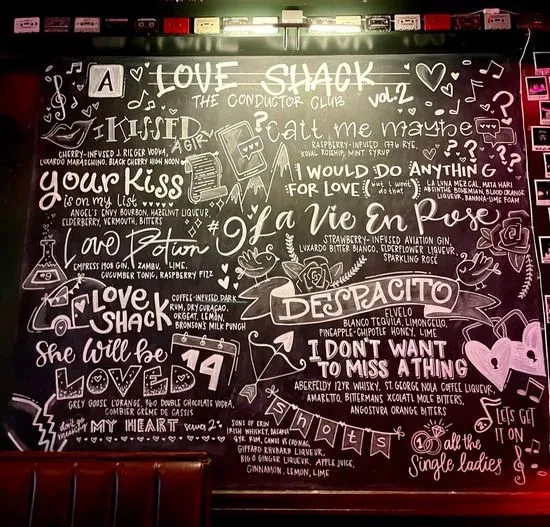 A
LOVE SHACK
THE CONDUCTOR CLUB
vol. 2
I KISSED
A GIRL
CHERRY-INFUSED J. RIEGER VODKA,
LUXARDO MARASCHINO, BLACK CHERRY HIGH NOON
your Kiss
is on my list
ANGEL'S ENVY BOURBON, HAZELNUT LIQUEUR,
ELDERBERRY, VERMOUTH, BITTERS
Love Potion
#9
EMPRESS 1908 GIN, ZAMBU, LIME,
CUCUMBER TONIC, RASPBERRY FIZZ
LOVE
SHACK
COFFEE-INFUSED DARK
RUM, DRY CURACAO,
ORGEAT, LEMON,
BRONSON'S MILK PUNCH
She will be
LOVED
14
GREY GOOSE L'ORANGE, 360 DOUBLE CHOCOLATE VODKA,
COMBIER CRÈME DE CASSIS
don't go
MY HEART
SONS OF ERIN
IRISH WHISKEY, BACARDI
GIFFARD RHUBARB LIQUEUR,
BIG O GINGER LIQUEUR, APPLE JUICE,
CINNAMON, LEMON, LIME
call me maybe
RASPBERRY-INFUSED 1776 RYE,
KOVAL ROSEHIP, MINT SYRUP
I WOULD DO ANYTHING
FOR LOVE (but i won't
do that)
LA LUNA MEZCAL, MATA HARI
ABSINTHE BOHEMIAN, BLOOD ORANGE
LIQUEUR, BANANA-LIME FOAM
La Vie En Rose
STRAWBERRY-INFUSED AVIATION GIN,
LUXARDO BITTER BIANCO, ELDERFLOWER LIQUEUR,
SPARKLING ROSE
DESPACITO
ELVELO
BLANCO TEQUILA, LIMONCELLO,
PINEAPPLE-CHIPOTLE HONEY, LIME
I DON'T WANT
TO MISS A THING
ABERFELDY 12YR WHISKY, ST. GEORGE NOLA COFFEE LIQUEUR,
AMARETTO, BITTERMANS XOCOLATL MOLE BITTERS,
ANGOSTURA ORANGE BITTERS
shots
LET'S GET
IT ON
all the
Single ladies